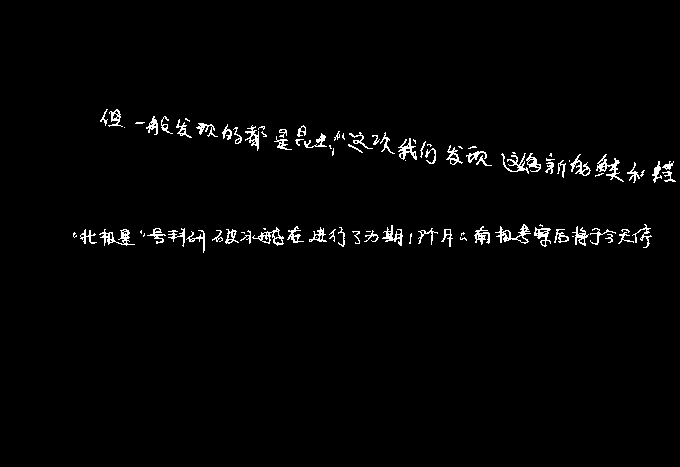 但一般发现的都是昆虫,“这次我们发现这馅新的鲑和蛙
“北极星”号科研破冰船在进行了为期17个月的南极考察后将于今天停